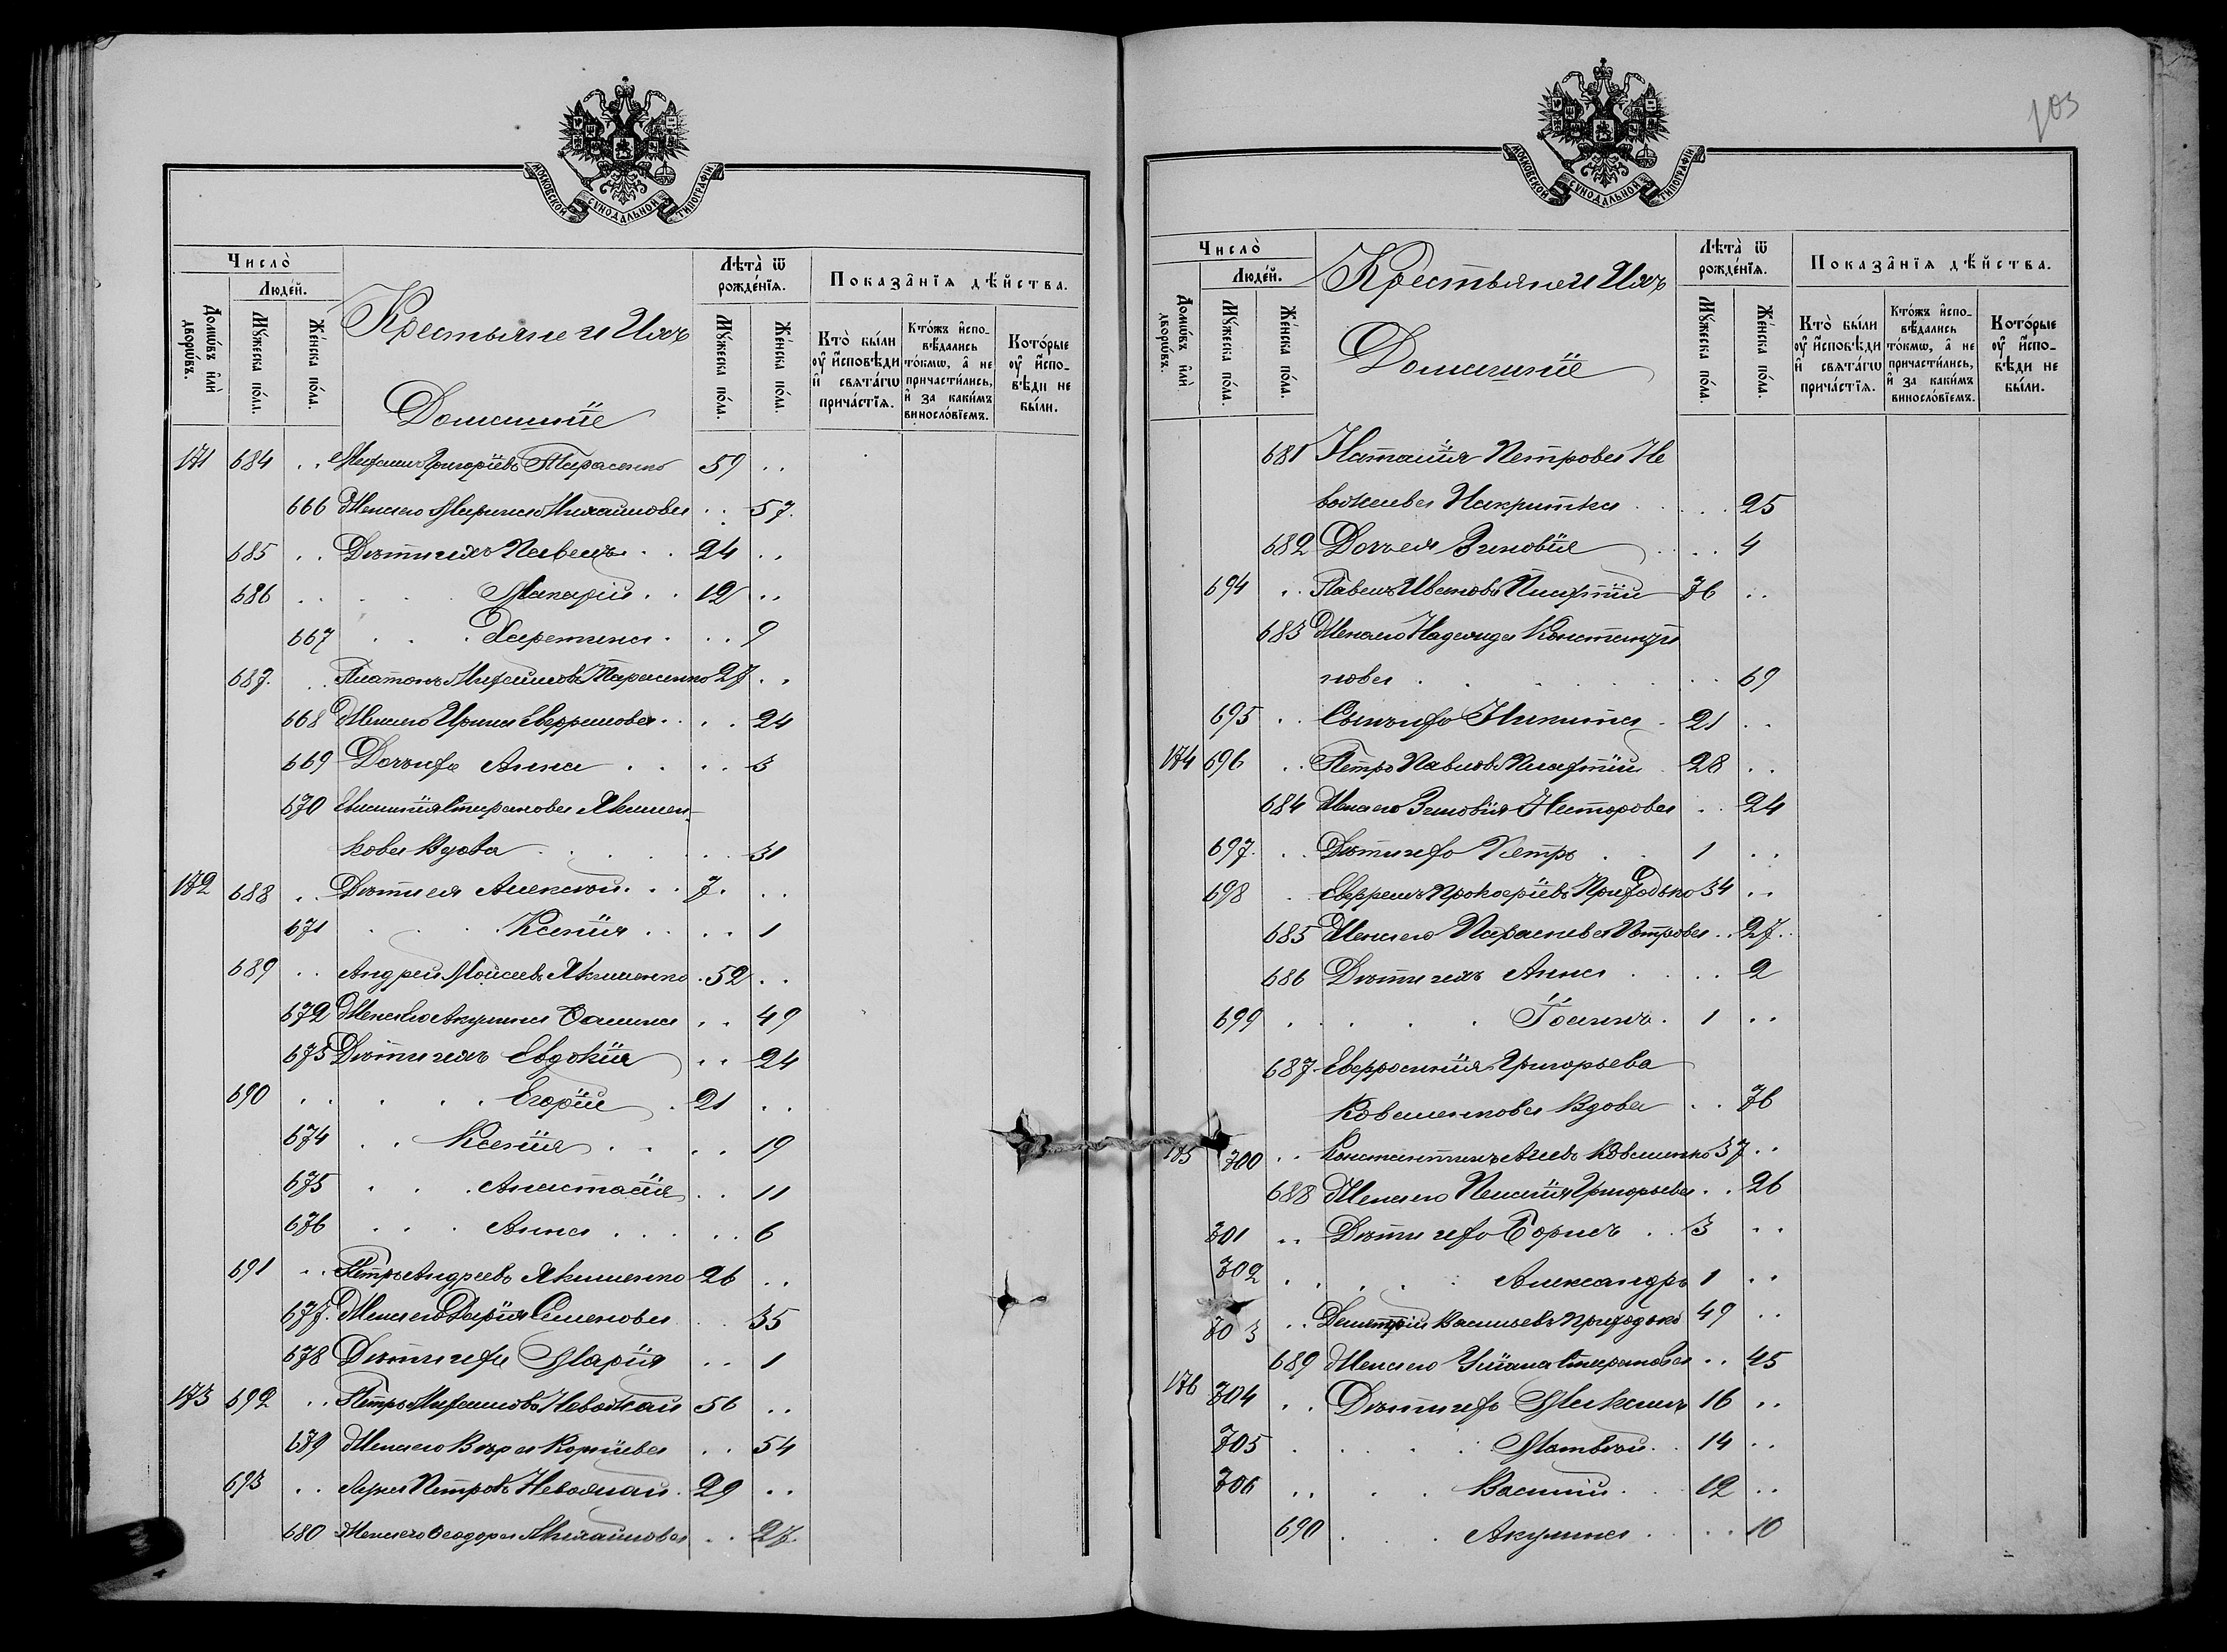 МОСКОВСКОЙ СѴНОДАЛЬНОЙ ТИПОГРАФІИ
Число̀
Людéй.
Домѡ́въ и҆лѝ дворѡ́въ.
Мꙋ́жеска по́ла.
Же́нска по́ла.
Крестьяне и Ихъ
Домашніе
Лѣта̀ ѿ рожде́нїѧ.
Мꙋ́жеска по́ла.
Же́нска по́ла.
Показа̑нїѧ дѣ́йства.
Кто̀ бы́ли оу҆ и҆сповѣ́ди и҆ свѧта́гѡ прича́стїѧ.
Кто́жъ и҆сповѣ́дались то́кмѡ, а҆ не причасти́лись, и҆ за каки́мъ винослові́емъ.
Кото́рые оу҆ и҆сповѣ́ди не бы́ли.
171 684 .. Михаилъ Григоріевъ Тарасенко 59 ..
666 Жена его Марина Михаилова .. 57.
685 .. Дѣти ихъ Павелъ . . 24 ..
686 .. Макарій . . 12 ..
667 . . . Харитина . .. 9
687. .. Платонъ Михаиловъ Тарасенко 27 ..
668 Жена его Ирина Евфремова . .. 24
669 Дочь ихъ Анна . . .. 3
670 Стефанова Якимен-
кова Вдова . . . . .. 31
172 688 .. Дѣти ея Алексѣй . . 7. ..
671 . . . Ксенія . . .. 1
689 .. Андрей Моисеевъ Якименко . 52 ..
672 Жена его Акулина Фомина .. 49
673 Дѣти ихъ Евдокія .. 24
690 .. . . . Егорій . 21 ..
674 . . Ксенія . . .. 19
675 . . . Анастасія .. 11
676 . . . Анна . . . .. 6
691 .. Петръ Андреевъ Якименко 26 ..
677. Жена его Дарія Семенова .. 35
678 Дѣти ихъ Марія .. 1
173 692 .. Петръ Михаиловъ Неволжай 56 ..
679 Жена его Вѣра Корніева .. 54
693 .. Лука Петровъ Неволжай . 29 ..
680 Жена его Ѳеодора Михаилова .. 27.
103
МОСКОВСКОЙ СѴНОДАЛЬНОЙ ТИПОГРАФІИ
Число̀
Людéй.
Домѡ́въ и҆лѝ дворѡ́въ.
Мꙋ́жеска по́ла.
Же́нска по́ла.
Крестьяне и Ихъ
Домашніе
Лѣта̀ ѿ рожде́нїѧ.
Мꙋ́жеска по́ла.
Же́нска по́ла.
Показа̑нїѧ дѣ́йства.
Кто̀ бы́ли оу҆ и҆сповѣ́ди и҆ свѧта́гѡ прича́стїѧ.
Кто́жъ и҆сповѣ́дались то́кмѡ, а҆ не причасти́лись, и҆ за каки́мъ винослові́емъ.
Кото́рые оу҆ и҆сповѣ́ди не бы́ли.
681 Наталія Петрова Не
волжаева Покритка . .. 25
682 Дочь ея Зиновія . .. 4
694 .. Павелъ Ивановъ Плахтій 76 ..
683 Жена его Надежда Константи
нова . . . . . .. 69
695 .. Сынъ ихъ Никита . 21 ..
174 696 .. Петръ Павловъ Плахтій . 28 ..
684 Жена его Зиновія Несторова .. 24
697. .. Дѣти ихъ Петръ . . 1 ..
698 .. Евфремъ Прокофіевъ Приходько 34 ..
685 Жена его Параскева Петрова .. 27..
686 Дѣти ихъ Анна . . .. 2
699 . . . . Іоаннъ . 1 ..
687. Евфросинія Григорьева
Коваленкова Вдова .. 76
175 700 .. Константинъ Коваленко 37 ..
688 Жена его Пелагія Григорьева .. 26
701 .. Дѣти ихъ Борисъ . . 3 ..
702 . . . . Александръ 1 ..
703 .. Димитрій Васильевъ Приходько 49 ..
689 Жена его Уліана Стефанова .. 45
176 704 .. Дѣти ихъ Максимъ 16 ..
705 . . . . Матвѣй . . 14 ..
706 .. . . Василій . . 12 ..
690 . . . Акулина . .. 10